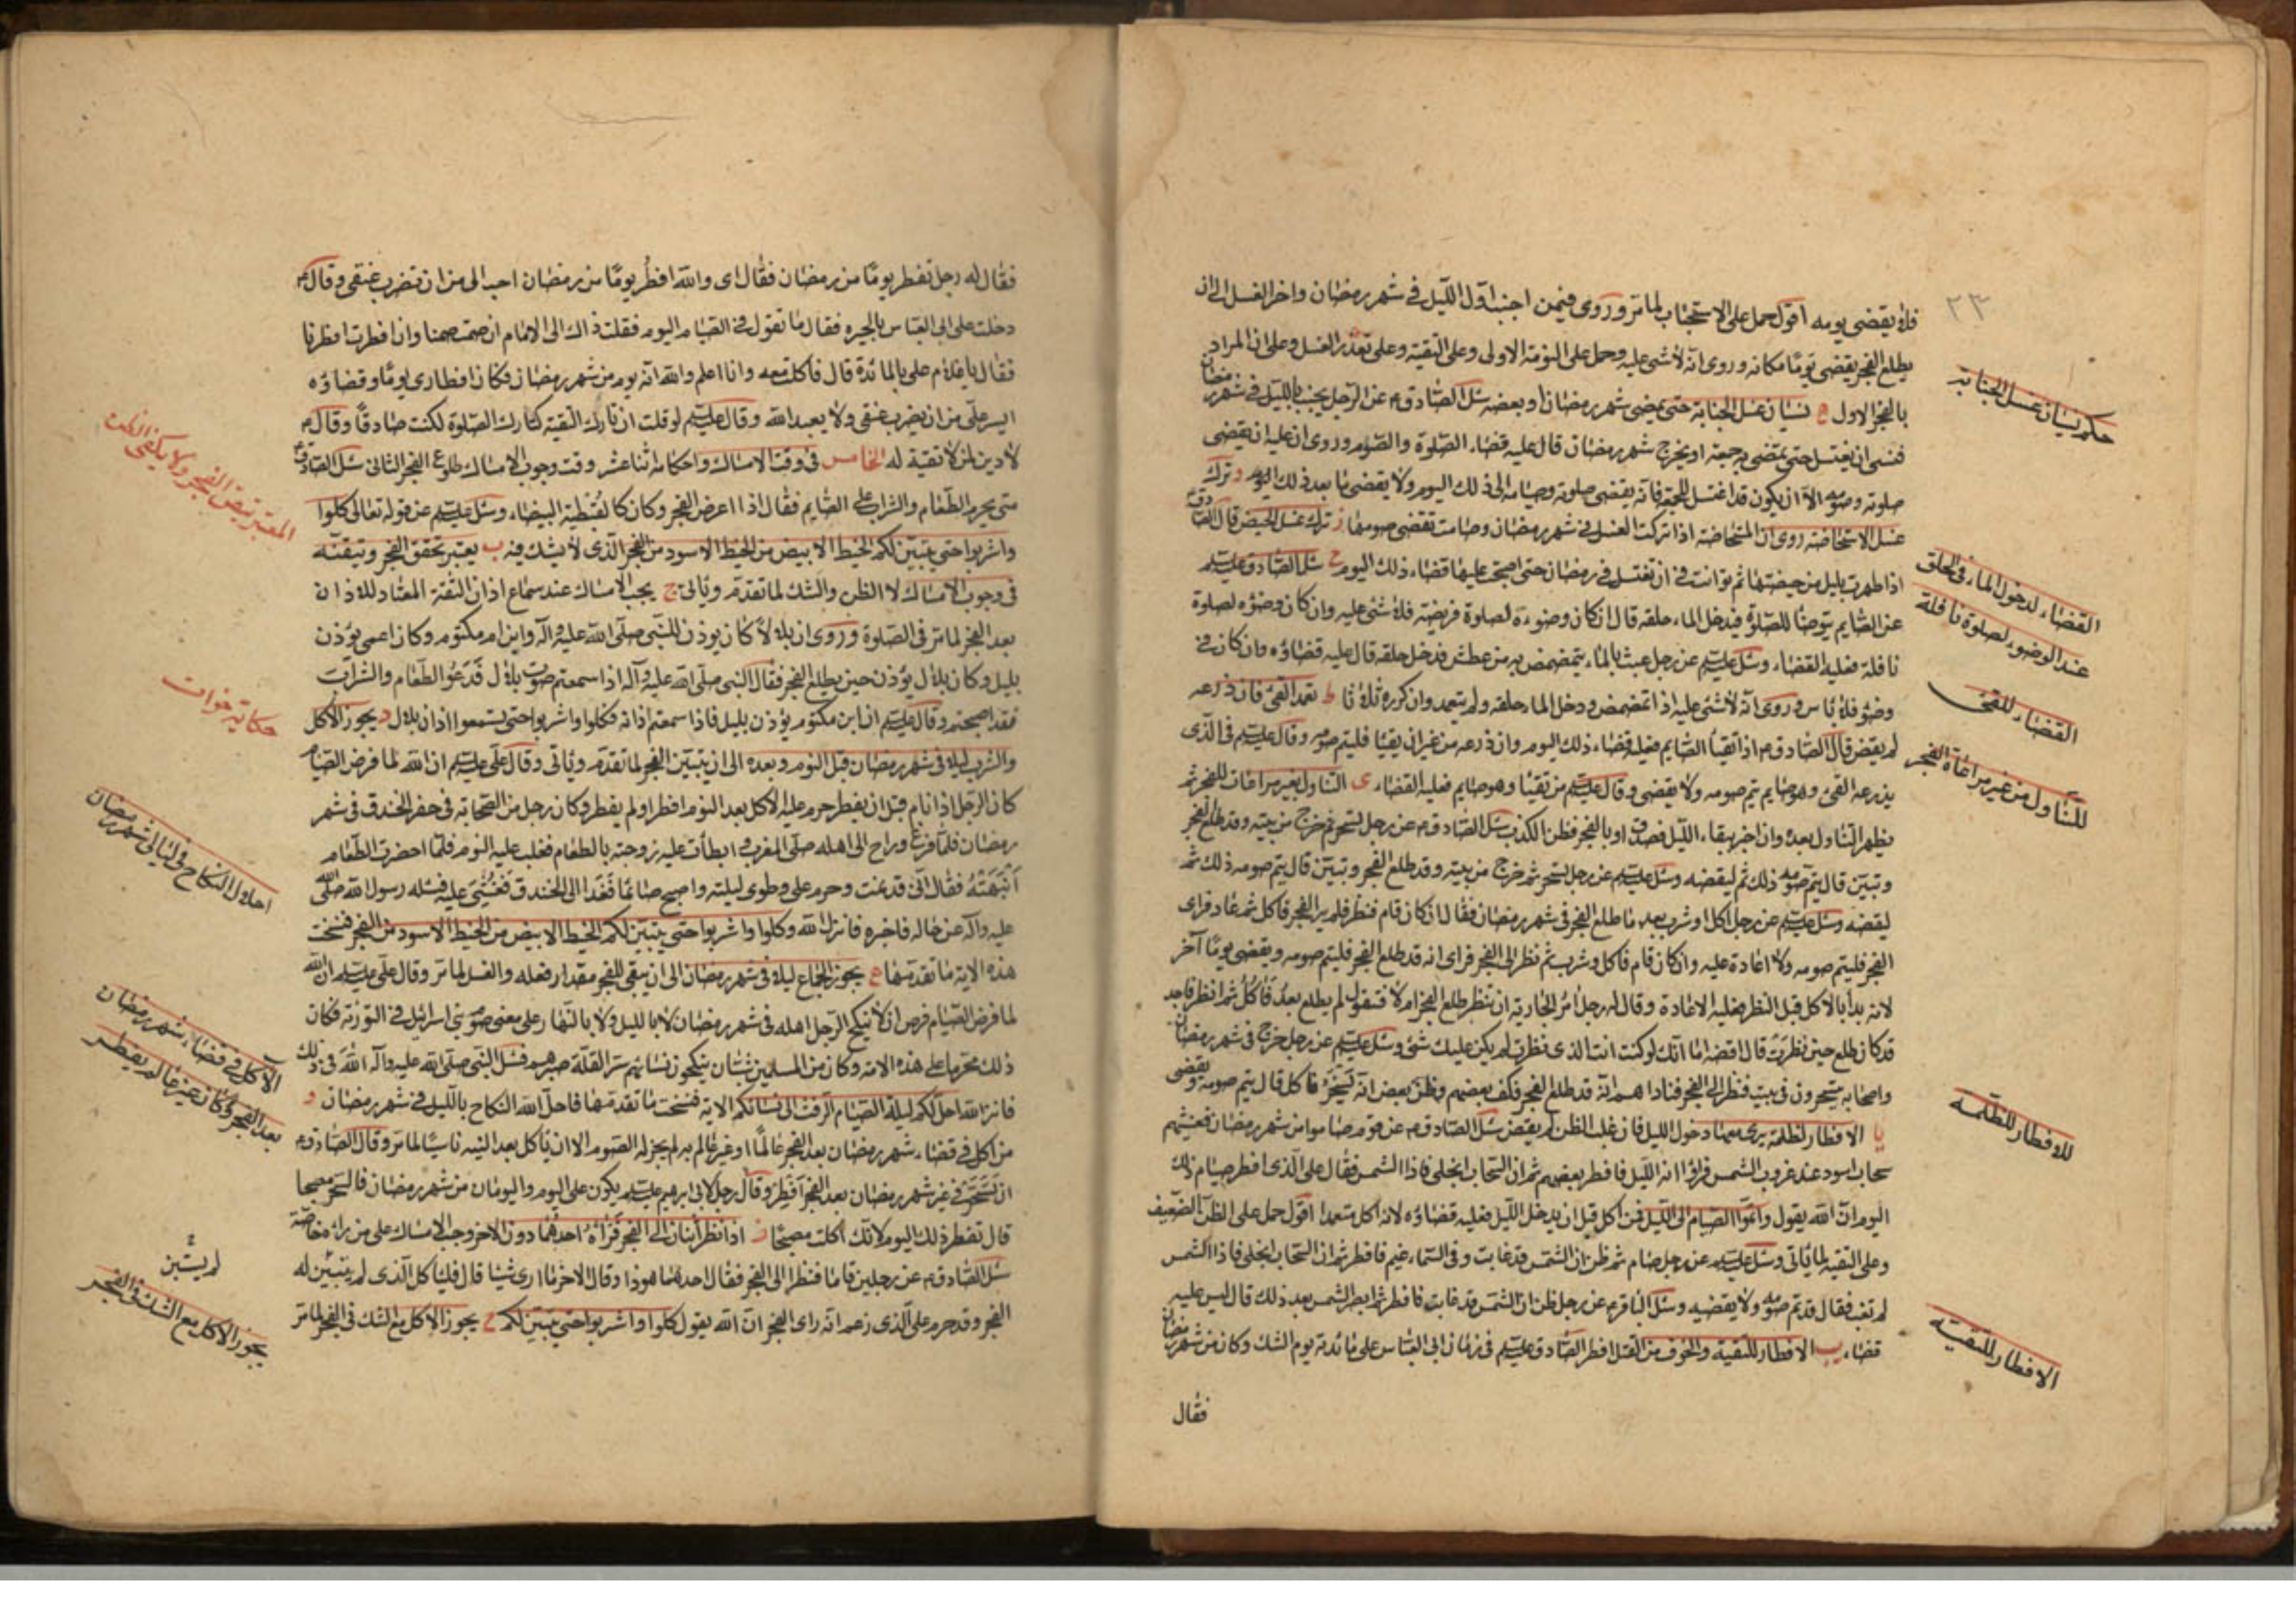 ٢٣
فلا يقضى يومه اقول حمل على الاستحباب لما مر وروى فيمن اجنب اول الليل فى شهر رمضان واخر الغسل الى ان
يطلع الفجر يقضى يوما مكانه وروى انه لا شئ عليه وحمل على النومة الاولى وعلى التقية وعلى تعذر الغسل وعلى ان المراد
بالفجر الاول نسيان غسل الجنابة حتى يمضى شهر رمضان او بعضه سئل الصادق ع عن الرجل يجنب بالليل فى شهر رمضان
فنسى ان يغتسل حتى تمضى به جمعة او يخرج شهر رمضان قال عليه قضاء الصلوة والصوم وروى ان عليه ان يقضى
صلوته وصومه الا ان يكون قد اغتسل للجمعة فانه يقضى صلوته وصيامه الى ذلك اليوم ولا يقضى ما بعد ذلك اليوم و ترك
غسل الاستحاضة روى ان المستحاضة اذا تركت الغسل فى شهر رمضان وصامت تقضى صومها ز ترك غسل الحيض قال الصادق
اذا طهرت بليل من حيضتها ثم توانت فى ان تغتسل فى رمضان حتى اصبحت عليها قضاء ذلك اليوم ح سئل الصادق عليه السلم
عن الصايم يتوضأ للصلوة فيدخل الماء حلقه قال ان كان وضوءه لصلوة فريضة فلا شئ عليه وان كان وضوءه لصلوة
نافلة فعليه القضاء وسئل عليه السلم عن رجل عبث بالماء يتمضمض به من عطش فدخل حلقه قال عليه قضاؤه وان كان فى
وضوء فلا باس وروى انه لا شئ عليه اذا تمضمض ودخل الماء حلقه ولم يتعمد وان كرره ثلاثا ط تعمد القئ فان ذرعه
لم يقض قال الصادق ع اذا تقيأ الصايم فعليه قضاء ذلك اليوم وان ذرعه من غير ان يتقيأ فليتم صومه وقال عليه السلم فى الذى
يذرعه القئ وهو صايم يتم صومه ولا يقضى وقال عليه السلم من تقيأ وهو صايم فعليه القضاء ى التناول بغير مراعات للفجر ثم
يظهر التناول بعده وان اخبر ببقاء الليل فصدق او بالفجر فظن الكذب سئل الصادق ع عن رجل تسحر ثم خرج من بيته وقد طلع الفجر
وتبين قال يتم صومه ذلك ثم ليقضه وسئل عليه السلم عن رجل تسحر ثم خرج من بيته وقد طلع الفجر وتبين قال يتم صومه ذلك ثم
ليقضه وسئل عليه السلم عن رجل اكل او شرب بعد ما طلع الفجر فى شهر رمضان فقال ان كان قام فنظر فلم ير الفجر فاكل ثم عاد فراى
الفجر فليتم صومه ولا اعادة عليه وان كان قام فاكل وشرب ثم نظر الى الفجر فراى انه قد طلع الفجر فليتم صومه ويقضى يوما آخر
لانه بدأ بالاكل قبل النظر فعليه الاعادة وقال له رجل امر الجارية ان تنظر طلع الفجر ام لا فتقول لم يطلع بعد فآكل ثم انظر فاجد
قد كان طلع حين نظرت قال اقضه اما انك لو كنت انت الذى نظرت لم يكن عليك شئ وسئل عليه السلم عن رجل خرج فى شهر رمضان
واصحابه يتسحرون فى بيت فنظر الى الفجر فناداهم انه قد طلع الفجر فكف بعضهم وظن بعض انه يسخر فاكل قال يتم صومه ويقضى
يا الافطار لظلمة يرى معها دخول الليل فان غلب الظن لم يقض سئل الصادق ع عن قوم صاموا من شهر رمضان فغشيهم
سحاب اسود عند غروب الشمس فراوا انه الليل فافطر بعضهم ثم ان السحاب انجلى فاذا الشمس فقال على الذى افطر صيام ذلك
اليوم ان الله يقول واتموا الصيام الى الليل فمن اكل قبل ان يدخل الليل فعليه قضاؤه لانه اكل متعمدا اقول حمل على الظن الضعيف
وعلى التقية لما ياتى وسئل عليه السلم عن رجل صام ثم ظن ان الشمس قد غابت وفى السماء غيم فافطر ثم ان السحاب انجلى فاذا الشمس
لم تغب فقال قد تم صومه ولا يقضيه وسئل الباقر ع عن رجل ظن ان الشمس قد غابت فافطر ثم ابصر الشمس بعد ذلك قال ليس عليه
قضاء يب الافطار للتقية والخوف من القتل افطر الصادق عليه السلم فى زمان ابى العباس على مائدته يوم الشك وكان من شهر رمضان
فقال
حكم نسيان غسل الجنابة
القضاء لدخول الماء فى الحلق
عند الوضوء لصلوة نافلة
القضاء للقئ
للتناول من غير مراعاة الفجر
للافطار للظلمة
الافطار للتقية
فقال له رجل تفطر يوما من رمضان فقال اى والله افطر يوما من رمضان احب الى من ان تضرب عنقى وقال ع
دخلت على ابى العباس بالحيره فقال ما تقول فى الصيام اليوم فقلت ذاك الى الامام ان صمت صمنا وان افطرت افطرنا
فقال يا غلام على بالمائدة قال فاكلت معه وانا اعلم والله انه يوم من شهر رمضان فكان افطارى يوما وقضاؤه
ايسر على من ان يضرب عنقى ولا يعبد الله وقال عليه السلم لو قلت ان تارك التقية كتارك الصلوة لكنت صادقا وقال ع
لا دين لمن لا تقية له الخامس فى وقت الامساك واحكامه اثنا عشر ا وقت وجوب الامساك طلوع الفجر الثانى سئل الصادق
متى يحرم الطعام والشراب على الصايم فقال اذا اعرض الفجر وكان كالقبطية البيضاء وسئل عليه السلم عن قوله تعالى كلوا
واشربوا حتى يتبين لكم الخيط الابيض من الخيط الاسود من الفجر الذى لا يشك فيه ب يعتبر تحقق الفجر وتيقنه
فى وجوب الامساك لا الظن والشك لما تقدم وياتى ج يجب الامساك عند سماع اذان الثقة المعتاد للاذان
بعد الفجر لما مر فى الصلوة وروى ان بلالا كان يوذن للنبى صلى الله عليه وآله وابن ام مكتوم وكان اعمى يوذن
بليل وكان بلال يوذن حين يطلع الفجر فقال النبى صلى الله عليه وآله اذا سمعتم صوت بلال فدعوا الطعام والشراب
فقد اصبحتم وقال عليه السلم ان ابن مكتوم يوذن بليل فاذا سمعتم اذانه فكلوا واشربوا حتى تسمعوا اذان بلال د يجوز الاكل
والشرب ليلا فى شهر رمضان قبل النوم وبعده الى ان يتبين الفجر لما تقدم وياتى وقال على عليه السلم ان الله لما فرض الصيام
كان الرجل اذا نام قبل ان يفطر حرم عليه الاكل بعد النوم افطر او لم يفطر وكان رجل من الصحابة فى حفر الخندق فى شهر
رمضان فلما فرغ وراح الى اهله صلى المغرب وابطأت عليه زوجته بالطعام فغلب عليه النوم فلما احضرت الطعام
انبهته فقال انى قد نمت وحرم على وطوى ليلته واصبح صائما فغدا الى الخندق فغشى عليه فسئله رسول الله صلى الله
عليه وآله عن حاله فاخبره فانزل الله وكلوا واشربوا حتى يتبين لكم الخيط الابيض من الخيط الاسود من الفجر فنسخت
هذه الاية ما تقدمها ه يجوز الجماع ليلا فى شهر رمضان الى ان يبقى للفجر مقدار فعله والغسل لما مر وقال على عليه السلم ان الله
لما فرض الصيام فرض ان لا ينكح الرجل اهله فى شهر رمضان لا بالليل ولا بالنهار على معنى صوم بنى اسرائيل فى التورية فكان
ذلك محرما على هذه الامة وكان من المسلمين شبان ينكحون نسائهم سرا لقلة صبرهم فسئل النبى صلى الله عليه وآله الله فى ذلك
فانزل الله احل لكم ليلة الصيام الرفث الى نسائكم الاية فنسخت ما تقدمها فاحل الله النكاح بالليل فى شهر رمضان و
من اكل فى قضاء شهر رمضان بعد الفجر عالما او غير عالم به لم يجز له الصوم الا ان ياكل بعد النية ناسيا لما مر وقال الصادق ع
ان تسحر فى غير شهر رمضان بعد الفجر افطر وقال رجل لابى ابرهيم عليه السلم يكون على اليوم واليومان من شهر رمضان فاتسحر مصبحا
قال تفطر ذلك اليوم لانك اكلت مصبحا ز اذا نظر اثنان الى الفجر فرآه احدهما دون الاخر وجب الامساك على من رآه خاصة
سئل الصادق ع عن رجلين قاما فنظرا الى الفجر فقال احدهما هو ذا وقال الاخر ما ارى شيئا قال فلياكل الذى لم يتبين له
الفجر وقد حرم على الذى زعم انه راى الفجر ان الله يقول كلوا واشربوا حتى يتبين لكم ح يجوز الاكل مع الشك فى الفجر لما مر
المعتبر تبين الفجر ولا يكفى الشك
احلال النكاح فى ليالى شهر رمضان
الاكل فى قضاء شهر رمضان
بعد الفجر وكان غير عالم يفطر
لم يستبن
يجوز الاكل مع الشك فى الفجر